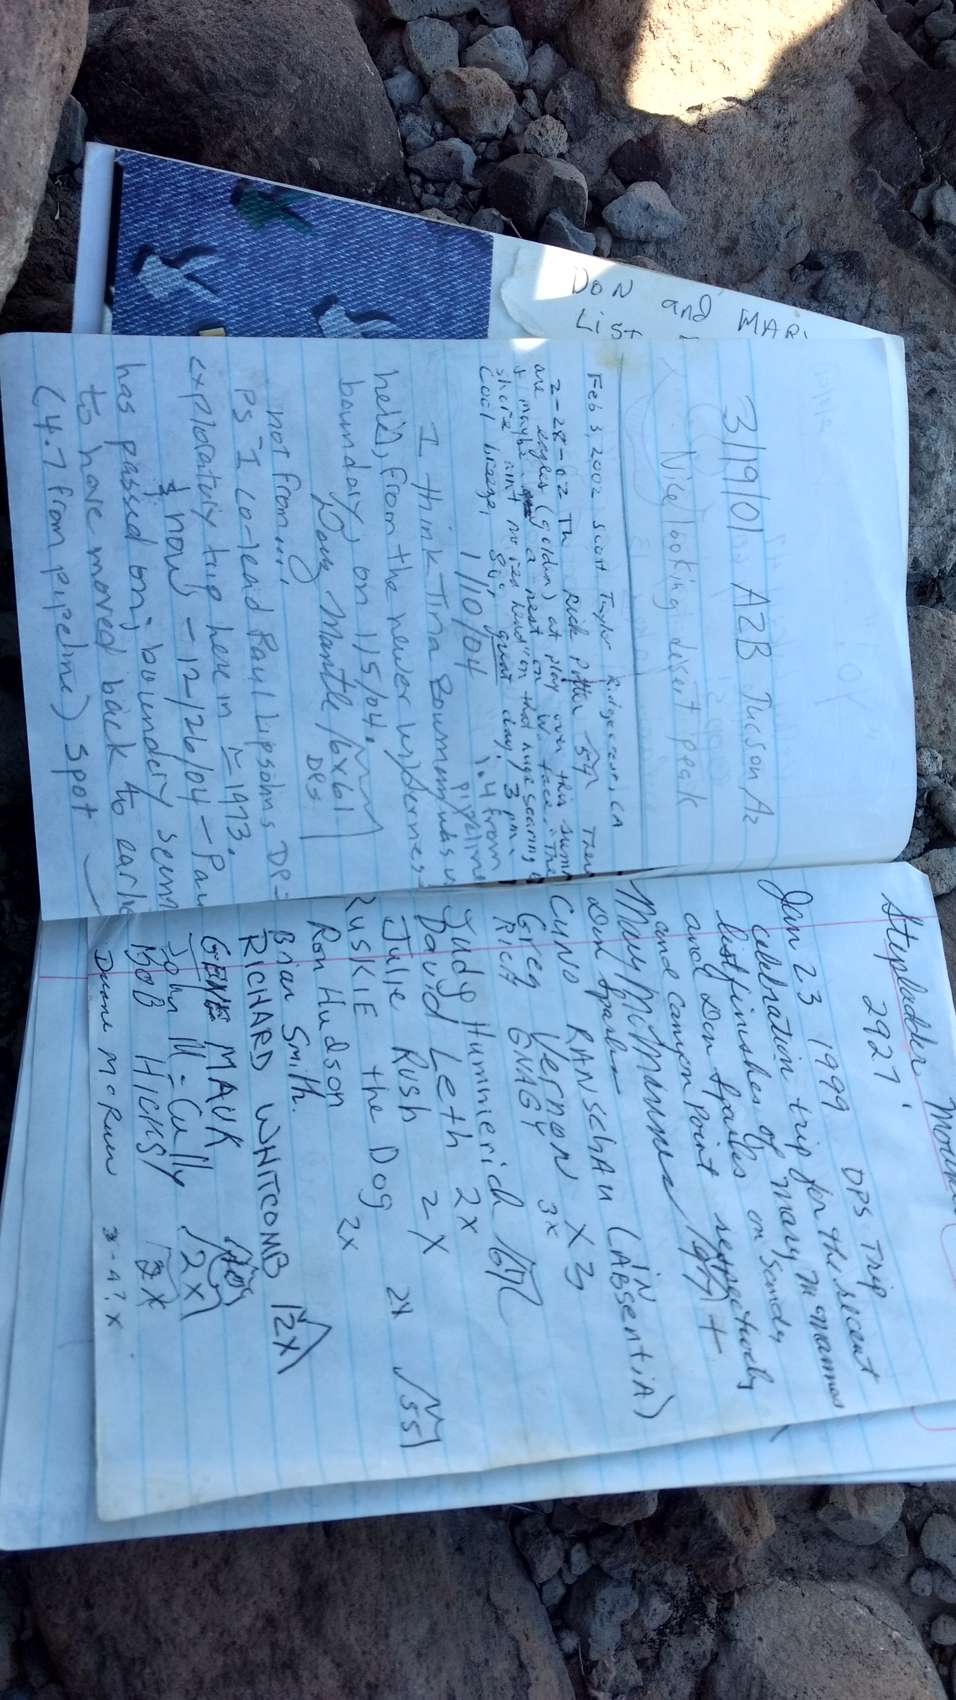 DON and MARI
LIST
3/19/01 AZB Tucson Az
Nice looking desert peak
Feb 3, 2002 Scott Taylor Ridgecrest, CA
2-28-02 Th There
are eagles (golden) at play over this summ
+ maybe a nest on W. face. The
share ain't no
cool breeze, great day, 3 pm.
1/10/04 1.4 from
pipeline
I think Tina Bowman was
here, from the newer wilderness
boundary, on 1/5/04.
Doug Mantle/6x61
DPS
not from...,
PS - I co-lead Paul Lipsohns DPS
exploratory trip here in ≈ 1973.
& now - 12/26/04 - Pau
has passed on; boundery seem
to have moved back to earlie
(4.7 from pipeline) spot
Stepladder Moun
2927'
DPS trip
Jan 23 1999
celebration trip for the recent
list finishes of Mary McMannes
and Don Sparks on Sandy
and Canyon Point respectively
Mary McMannes
Don Sparks (IN AbsentiA)
CUNO RANSCHAU X3
Greg Vernon 3x
RICH GNAGY
Judy Hummerich
David Leth 2x
Julie Rush 2X
RUSKIE the Dog 2x
Ron Hudson 2x
Brian Smith
RICHARD WHITCOMB 12x
GENE MAUK
John McCully 2x
BOB HICKS 2x
Duane McRuer 3-4?x